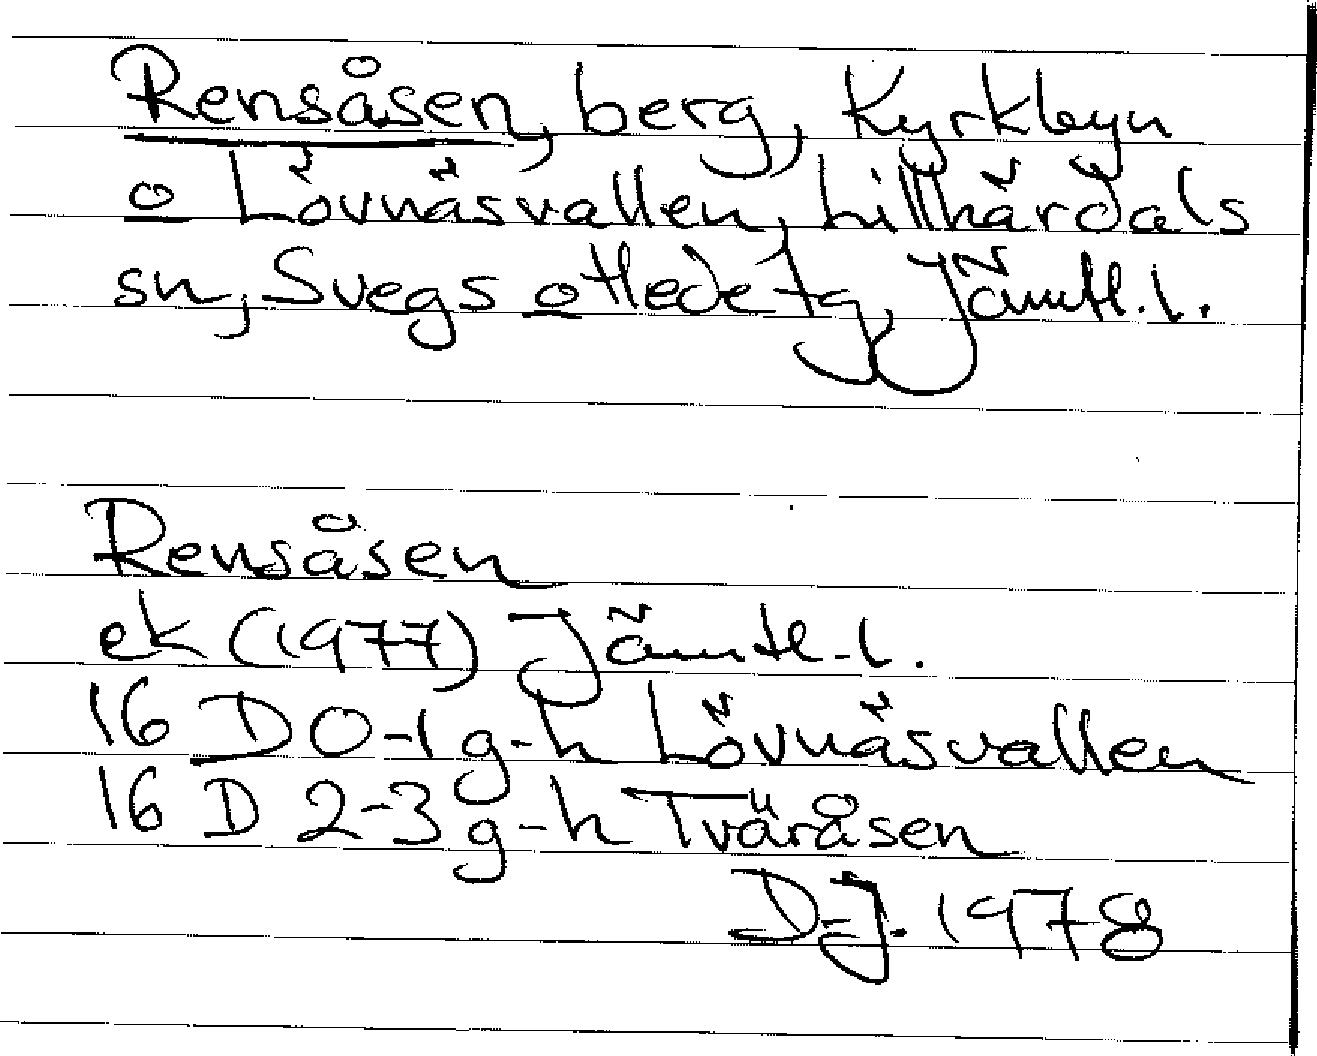 Rensåsen, berg, Kyrkbyn
o Lövnäsvallen, Lillhärdals
sn, Svegs ottledetg, Jämtl.l.
Rensåsen
ek (1977) Jämtl.l.
16 D 0-1 g-h Lövnäsvallen
16 D 2-3 g-h Tväråsen
D.J. 1978